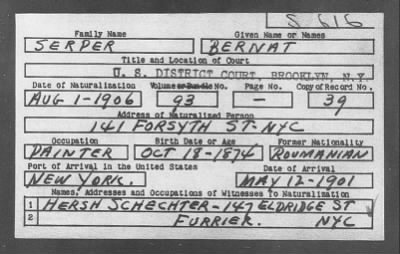 S 616
Family Name Given Name or Names
SERPER BERNAT
Title and Location of Court
U. S. DISTRICT COURT, BROOKLYN, N.Y.
Date of Naturalization Volume or Bundle No. Page No. Copy of Record No.
AUG 1-1906 93 — 39
Address of Naturalized Person
141 FORSYTH ST-NYC
Occupation Birth Date or Age Former Nationality
PAINTER OCT 18-1874 ROUMANIAN
Port of Arrival in the United States Date of Arrival
NEW YORK. MAY 12-1901
Names, Addresses and Occupations of Witnesses To Naturalization
1 HERSH SCHECHTER-147 ELDRIDGE ST
2 FURRIER. NYC